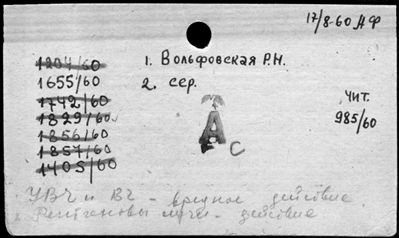 17/8-60 АФ
1204/60
1. Вольфовская Р.Н.
1655/60
2. сер.
1742/60
Чит.
1829/60
А
985/60
1856/60
С
1857/60
1405/60
УВЧ и ВЧ - вредное действие
Рентгеновы лучи - действие